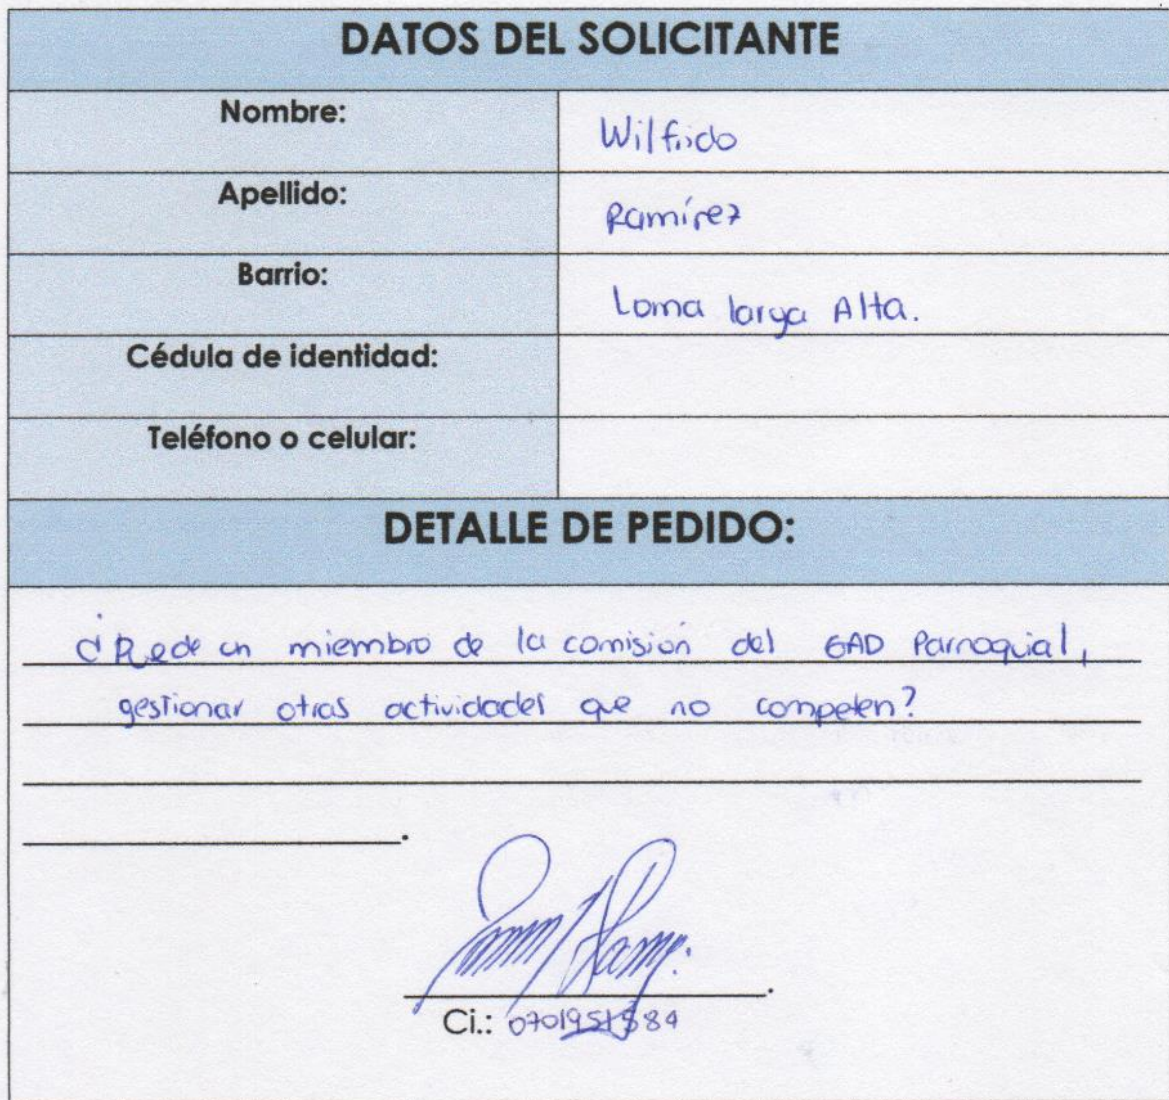 DATOS DEL SOLICITANTE
Nombre: Wilfrido
Apellido: Ramírez
Barrio: Loma larga Alta.
Cédula de identidad:
Teléfono o celular:
DETALLE DE PEDIDO:
¿Puede un miembro de la comisión del GAD Parroquial,
gestionar otras actividades que no competen?
Ci.: